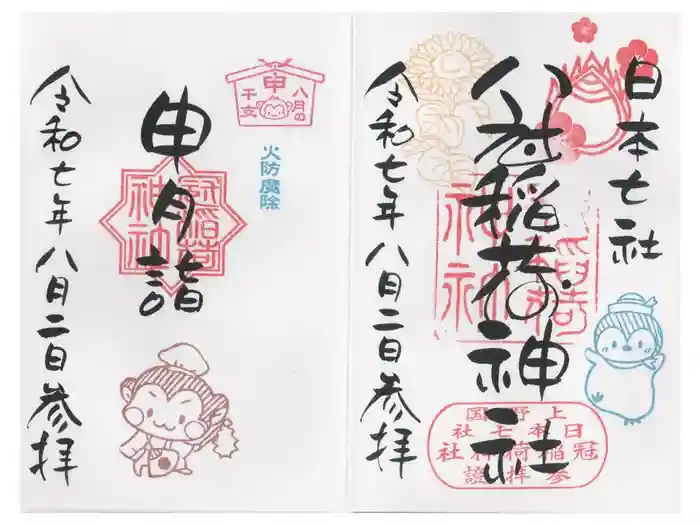 日本七社
冠稲荷神社
冠稲荷
神社
令和七年八月二日参拝
上野国
日本七社
冠稲荷神社
参拝證
申
八月の
干支
火防魔除
申月詣
冠稲荷
神社
令和七年八月二日参拝